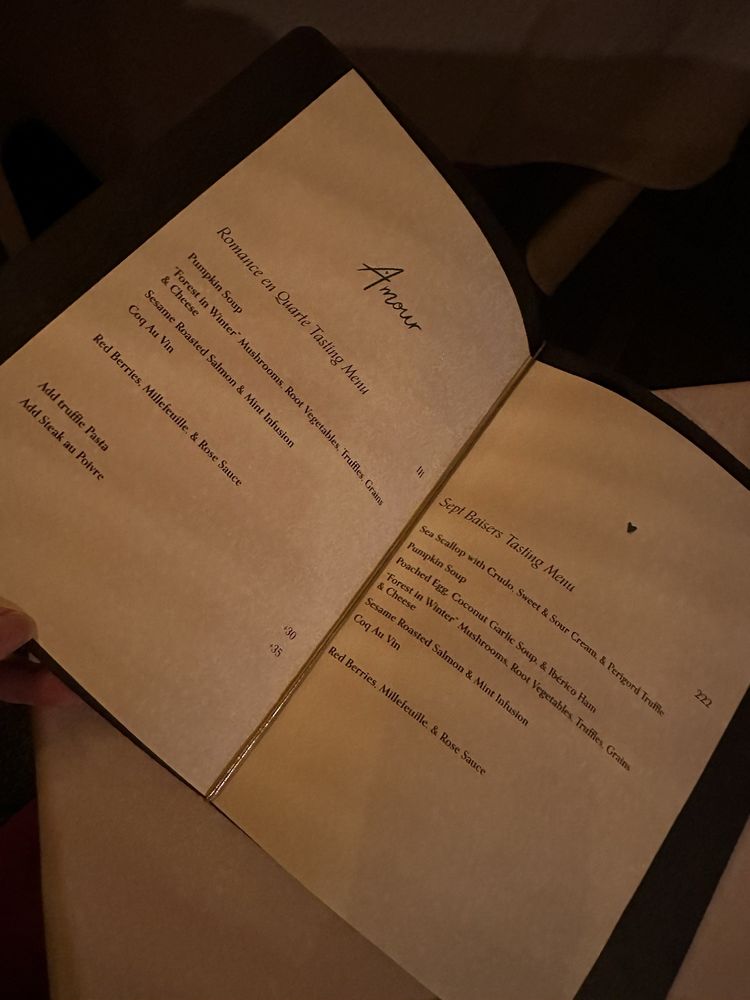 Amour
Romance en Quarte Tasting Menu
111
Pumpkin Soup
"Forest in Winter" Mushrooms, Root Vegetables, Truffles, Grains
& Cheese
Sesame Roasted Salmon & Mint Infusion
Coq Au Vin
Red Berries, Millefeuille, & Rose Sauce
Add truffle Pasta +30
Add Steak au Poivre +35
♥
Sept Baisers Tasting Menu
222
Sea Scallop with Crudo, Sweet & Sour Cream, & Perigord Truffle
Pumpkin Soup
Poached Egg, Coconut Garlic Soup, & Ibérico Ham
"Forest in Winter" Mushrooms, Root Vegetables, Truffles, Grains
& Cheese
Sesame Roasted Salmon & Mint Infusion
Coq Au Vin
Red Berries, Millefeuille, & Rose Sauce